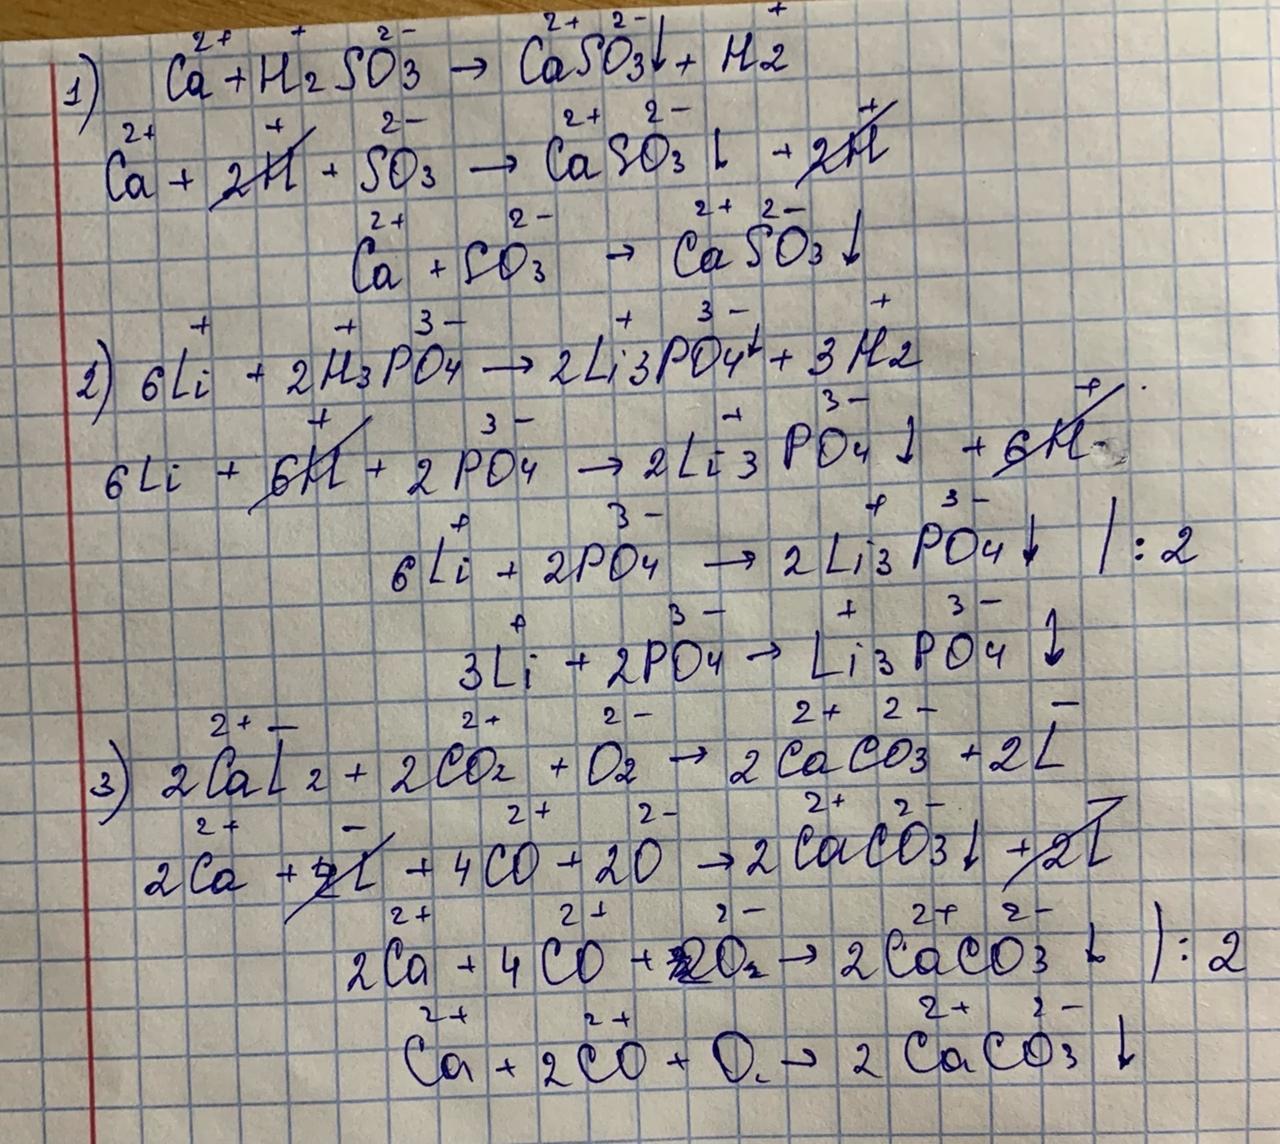 1) Ca²⁺ + H⁺₂SO₃²⁻ → Ca²⁺SO₃²⁻↓ + H₂⁺
Ca²⁺ + 2H⁺ + SO₃²⁻ → Ca²⁺SO₃²⁻↓ + 2H⁺
Ca²⁺ + SO₃²⁻ → Ca²⁺SO₃²⁻↓
2) 6Li⁺ + 2H⁺₃PO₄³⁻ → 2Li⁺₃PO₄³⁻↓ + 3H₂⁺
6Li + 6H⁺ + 2PO₄³⁻ → 2Li⁺₃PO₄³⁻↓ + 6H⁺
6Li⁺ + 2PO₄³⁻ → 2Li⁺₃PO₄³⁻↓ | : 2
3Li⁺ + 2PO₄³⁻ → Li⁺₃PO₄³⁻↓
3) 2Ca²⁺I⁻₂ + 2CO₂²⁺ + O₂²⁻ → 2Ca²⁺CO₃²⁻ + 2I⁻
2Ca²⁺ + 2I⁻ + 4CO²⁺ + 2O²⁻ → 2Ca²⁺CO₃²⁻↓ + 2I⁻
2Ca²⁺ + 4CO²⁺ + 2O₂²⁻ → 2Ca²⁺CO₃²⁻↓ | : 2
Ca²⁺ + 2CO²⁺ + O → 2Ca²⁺CO₃²⁻↓